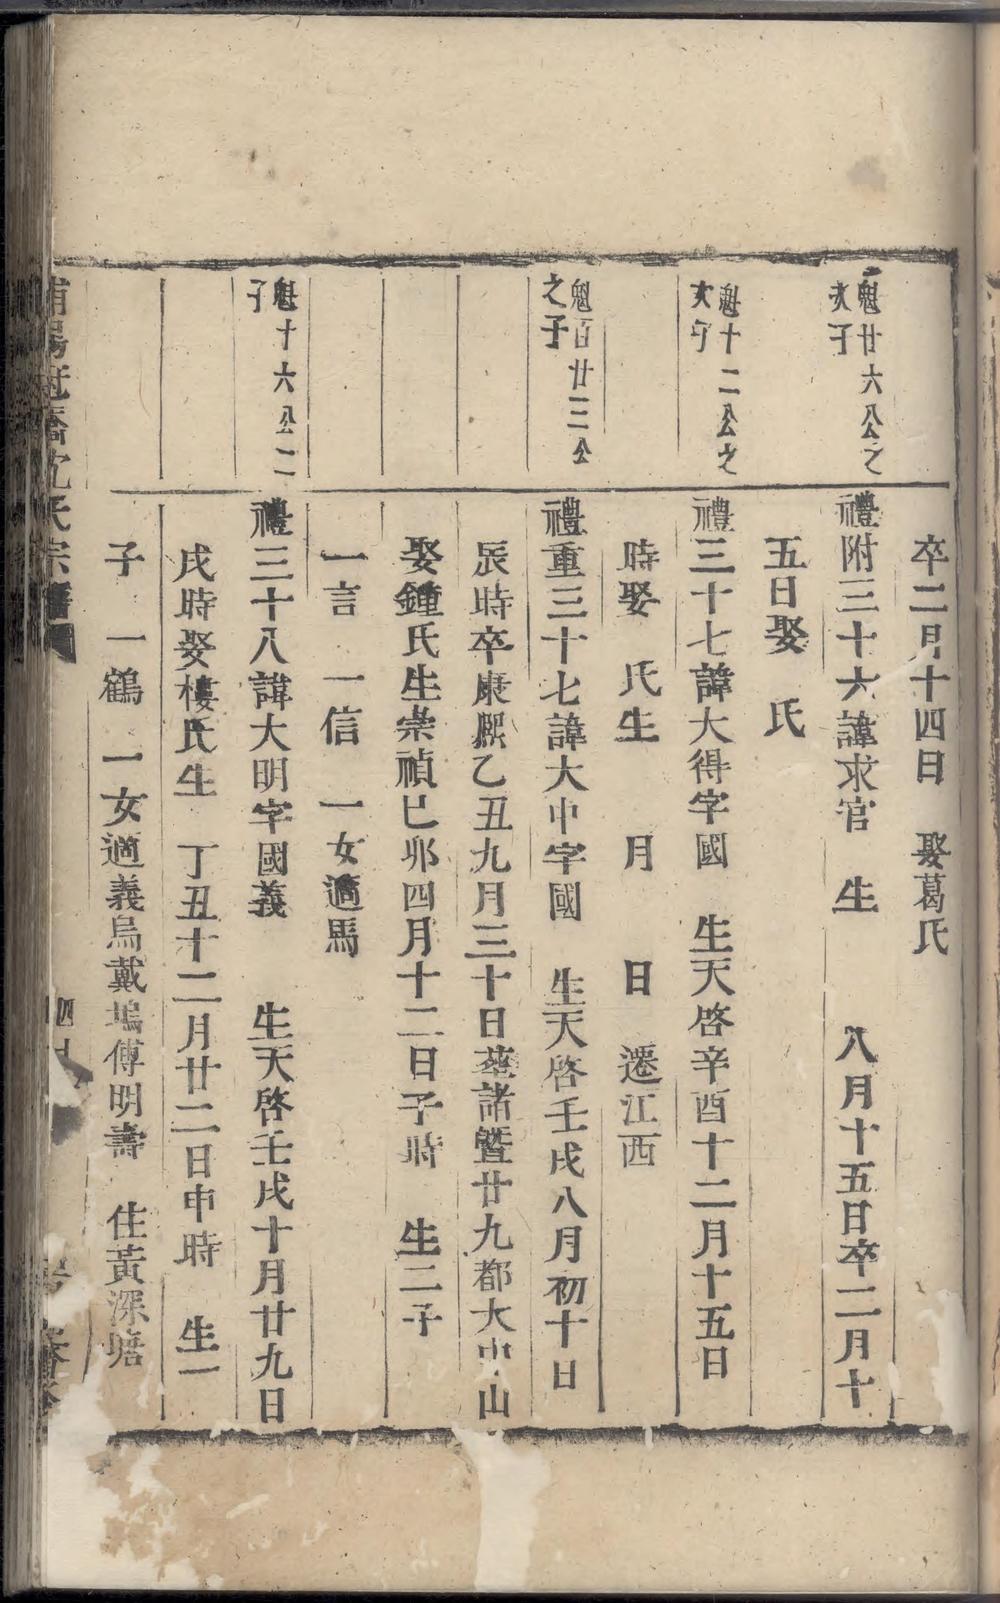 卒二月十四日　娶葛氏
魁廿六公之
次子
禮附三十六諱求官　生　　八月十五日卒二月十
五日娶　氏
魁十二公之
次子
禮三十七諱大得字國　生天啓辛酉十二月十五日
時娶　氏生　　月　　日　遷江西
魁百廿三公
之子
禮重三十七諱大中字國　生天啓壬戌八月初十日
辰時卒康熙乙丑九月三十日塟諸曁廿九都大忠山
娶鍾氏生崇禎巳卯四月十二日子時　生二子
一言　一信　一女適馬
魁十六公二
子
禮三十八諱大明字國義　　生天啓壬戌十月廿九日
戌時娶樓氏生　丁丑十二月廿二日申時　生一
子　一鶴　一女適義烏戴塢傅明壽　住黃深塘
浦陽橋沈氏宗譜